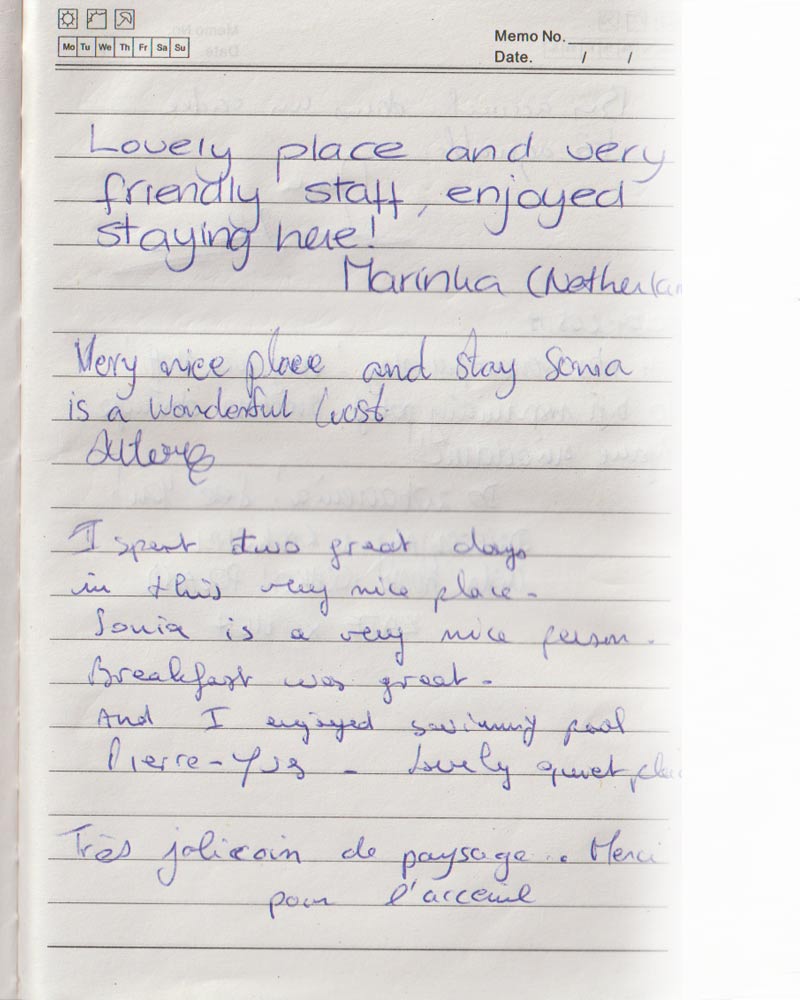 Mo Tu We Th Fr Sa Su
Memo No.
Date. / /
Lovely place and very
friendly staff, enjoyed
staying here!
Marinka (Netherlan
Very nice place and stay Sonia
is a wonderful host
I spent two great days
in this very nice place.
Sonia is a very nice person.
Breakfast was great.
And I enjoyed swimming pool
Pierre-Yves - Lovely quiet plac
Très joli coin de paysage.. Merci
pour l'acceuil